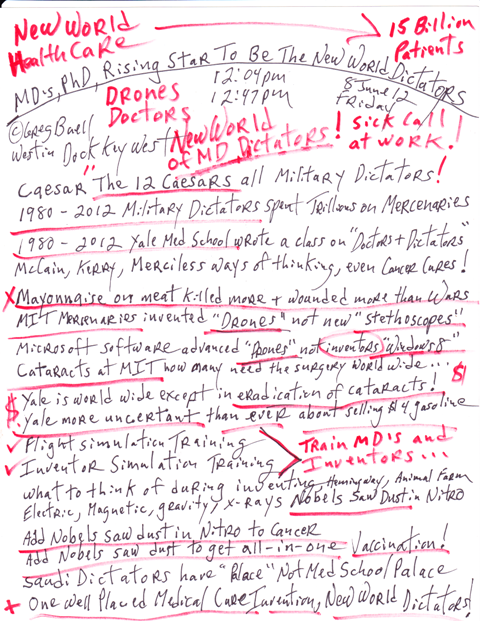 New World
Health Care
15 Billion
Patients
MD's, PhD, Rising Star To Be The New World Dictators
Drones
Doctors
12:04pm
12:47pm
8 June 12
Friday
© Greg Buell
Westin Dock Key West
"New World
of MD Dictators!
Sick Call!
at work.
Caesar "The 12 Caesars all Military Dictators!
1980-2012 Military Dictators spent Trillions on Mercenaries
1980-2012 Yale Med School wrote a class on "Doctors + Dictators"
McCain, Kerry, Merciless ways of thinking, even Cancer Cures!
x Mayonnaise on meat killed more + wounded more than Wars
MIT Mercenaries invented "Drones" not new "Stethoscopes"
Microsoft software advanced "Drones" not inventors "Windows 8"
Cataracts at MIT how many need the surgery world wide...
$ Yale is world wide except in eradication of cataracts! $
$ Yale more uncertant than ever about selling $4 gasoline
✓ Flight simulation Training
✓ Inventor Simulation Training
Train MD's and
Inventors...
what to think of during inventing Hemingway, Animal Farm
Electric, Magnetic, gravity, x-rays Nobels Saw Dust in Nitro
Add Nobels saw dust in Nitro to Cancer
Add Nobels saw dust to get all-in-one Vaccination!
Saudi Dictators have "Palace" Not Med School Palace
+ One well Placed Medical Care Invention, New World Dictators!